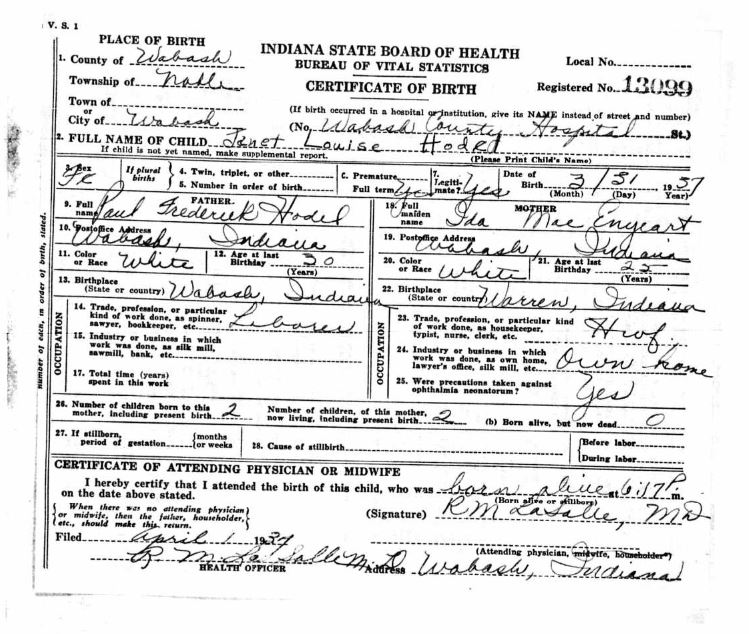 V. S. 1
PLACE OF BIRTH
INDIANA STATE BOARD OF HEALTH
BUREAU OF VITAL STATISTICS
CERTIFICATE OF BIRTH
Local No.
Registered No. 13099
1. County of Wabash
Township of Noble
Town of
or
City of Wabash
(If birth occurred in a hospital or institution, give its NAME instead of street and number)
(No. Wabash County Hospital St.)
2. FULL NAME OF CHILD Janet Louise Hodel
If child is not yet named, make supplemental report.
(Please Print Child's Name)
3. Sex Fe
If plural births
4. Twin, triplet, or other
5. Number in order of birth
6. Premature
Full term Yes
7. Legitimate? Yes
Date of Birth 3/31 1937
(Month) (Day) Year)
FATHER.
9. Full name Paul Frederick Hodel
10. Postoffice Address Wabash, Indiana
11. Color or Race White
12. Age at last Birthday 30
(Years)
13. Birthplace (State or country) Wabash, Indiana
OCCUPATION
14. Trade, profession, or particular kind of work done, as spinner, sawyer, bookkeeper, etc. Laborer
15. Industry or business in which work was done, as silk mill, sawmill, bank, etc.
17. Total time (years) spent in this work
MOTHER
18. Full maiden name Ida Mae Enyeart
19. Postoffice Address Wabash, Indiana
20. Color or Race White
21. Age at last Birthday 25
(Years)
22. Birthplace (State or country) Warren, Indiana
OCCUPATION
23. Trade, profession, or particular kind of work done, as housekeeper, typist, nurse, clerk, etc. Hwf.
24. Industry or business in which work was done, as own home, lawyer's office, silk mill, etc. Own home
25. Were precautions taken against ophthalmia neonatorum? Yes
26. Number of children born to this mother, including present birth 2
Number of children, of this mother, now living, including present birth 2
(b) Born alive, but now dead 0
27. If stillborn, period of gestation {months or weeks
28. Cause of stillbirth
{Before labor
During labor
CERTIFICATE OF ATTENDING PHYSICIAN OR MIDWIFE
I hereby certify that I attended the birth of this child, who was born alive at 6:17 P. m.
on the date above stated.
(Born alive or stillborn)
{When there was no attending physician or midwife, then the father, householder, etc., should make this return.}
(Signature) R M LaSalle, MD
(Attending physician, midwife, householder*)
Filed April 1 1937
R. M. La Salle M.D.
HEALTH OFFICER
Address Wabash, Indiana
number of each, in order of birth, stated.